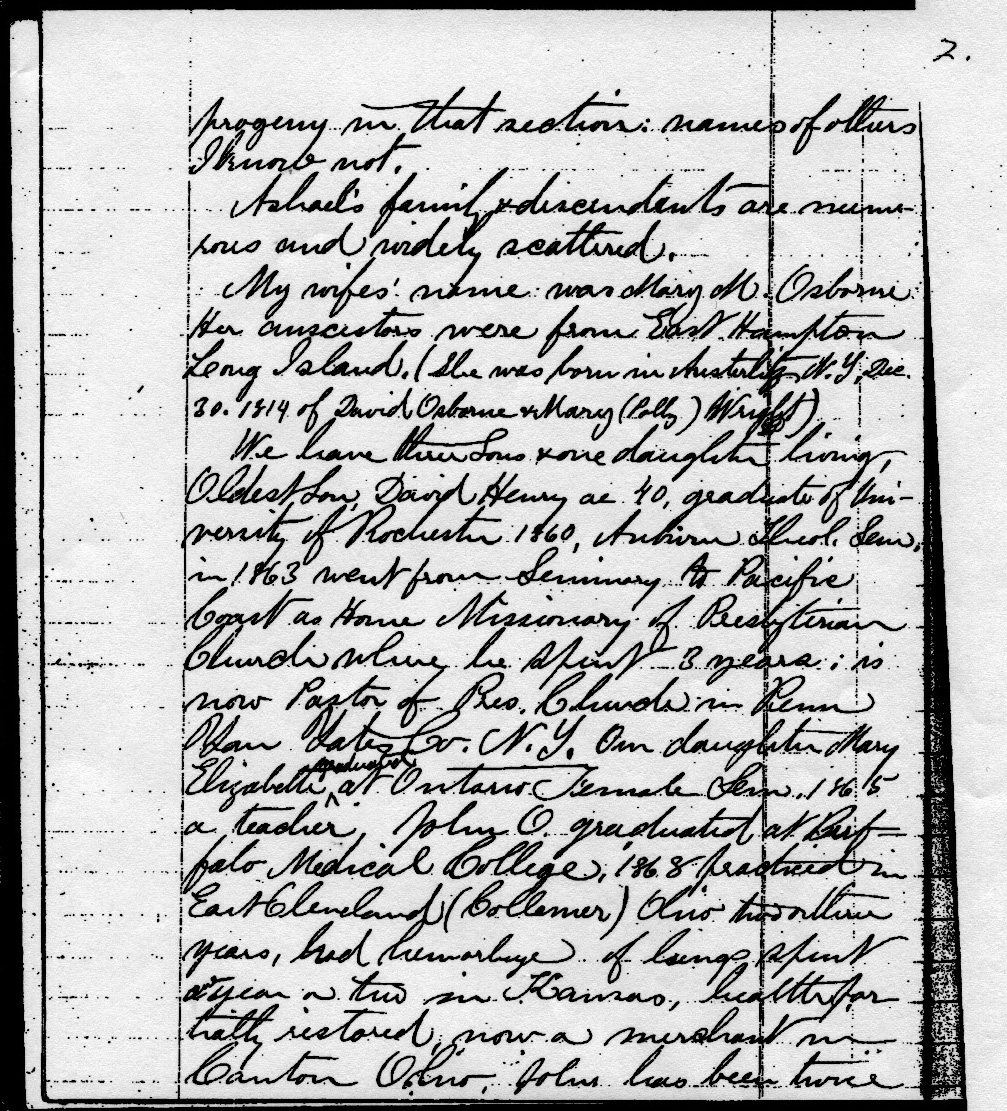 2.
progeny in that section: names of others
I know not.
Ashael's family & discendents are nume-
rous and widely scattered.
My wifes' name was Mary M. Osborne
Her anscestors were from East Hampton
Long Island. (She was born in Austerlitz, N.Y. Dec.
30. 1814 of David Osborne & Mary (Polly) Wright)
We have three Sons & one daughter living,
Oldest Son, David Henry ae 40, graduate of Uni-
versity of Rochester 1860, Auburn Theol. Sem.
in 1863 went from Seminary to Pacific
Coast as Home Missionary of Presbyterian
Church where he spent 3 years; is
now Pastor of Pres. Church in Penn
Yan Yates Co. N.Y. Our daughter Mary
graduated
Elizabeth ^ at Ontario Female Sem. 1865
a teacher, John O. graduated at Buf-
falo Medical College, 1868 practiced in
East Cleveland (Collamer) Ohio two or three
years, had hemorhage of lungs, spent
a year or two in Kansas, health par-
tially restored, now a merchant in
Canton Ohio, John has been twice